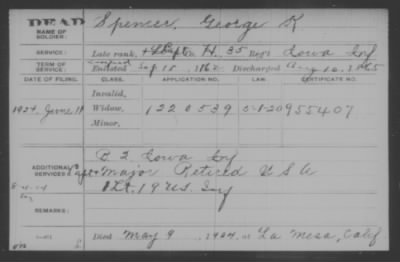 DEAD
NAME OF SOLDIER: Spencer, George K
SERVICE: Late rank, H, 35 Reg't Iowa Inf
TERM OF SERVICE: Enlisted Sep 15, 1862 Discharged Aug 10, 1865
DATE OF FILING. CLASS. APPLICATION NO. LAW. CERTIFICATE NO.
Invalid,
1924, June 11 Widow, 1220539 955407
Minor,
ADDITIONAL SERVICES: B 2 Iowa Inf
Major Retired U S A
1 Lt. 19 U.S. Inf
REMARKS:
Died May 9, 1924, at La Mesa, Calif